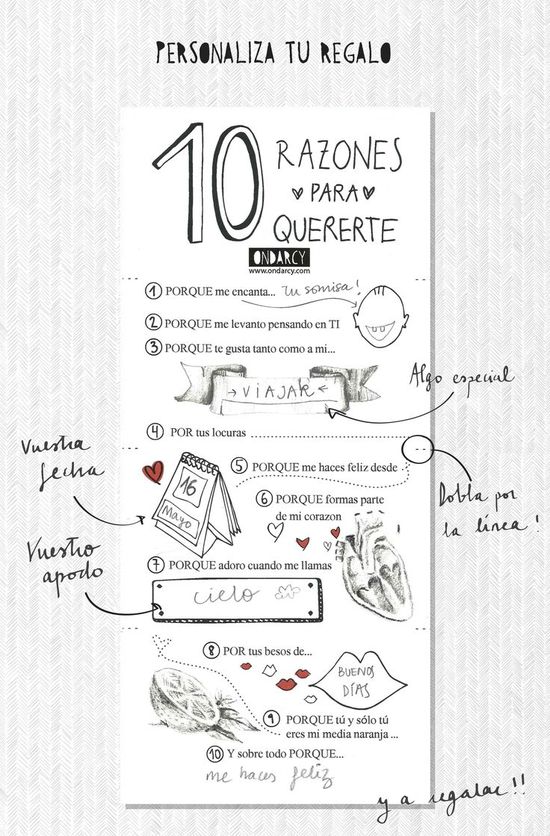 PERSONALIZA TU REGALO
10 RAZONES
PARA
QUERERTE
ONDARCY
www.ondarcy.com
1 PORQUE me encanta... tu sonrisa!
2 PORQUE me levanto pensando en TI
3 PORQUE te gusta tanto como a mi...
VIAJAR
Algo especial
4 POR tus locuras
Vuestra
fecha
5 PORQUE me haces feliz desde
16
Mayo
6 PORQUE formas parte
de mi corazon
Dobla por
la línea!
Vuestro
apodo
7 PORQUE adoro cuando me llamas
cielo
8 POR tus besos de...
BUENOS
DÍAS
9 PORQUE tú y sólo tú
eres mi media naranja...
10 Y sobre todo PORQUE...
me haces feliz
y a regalar!!